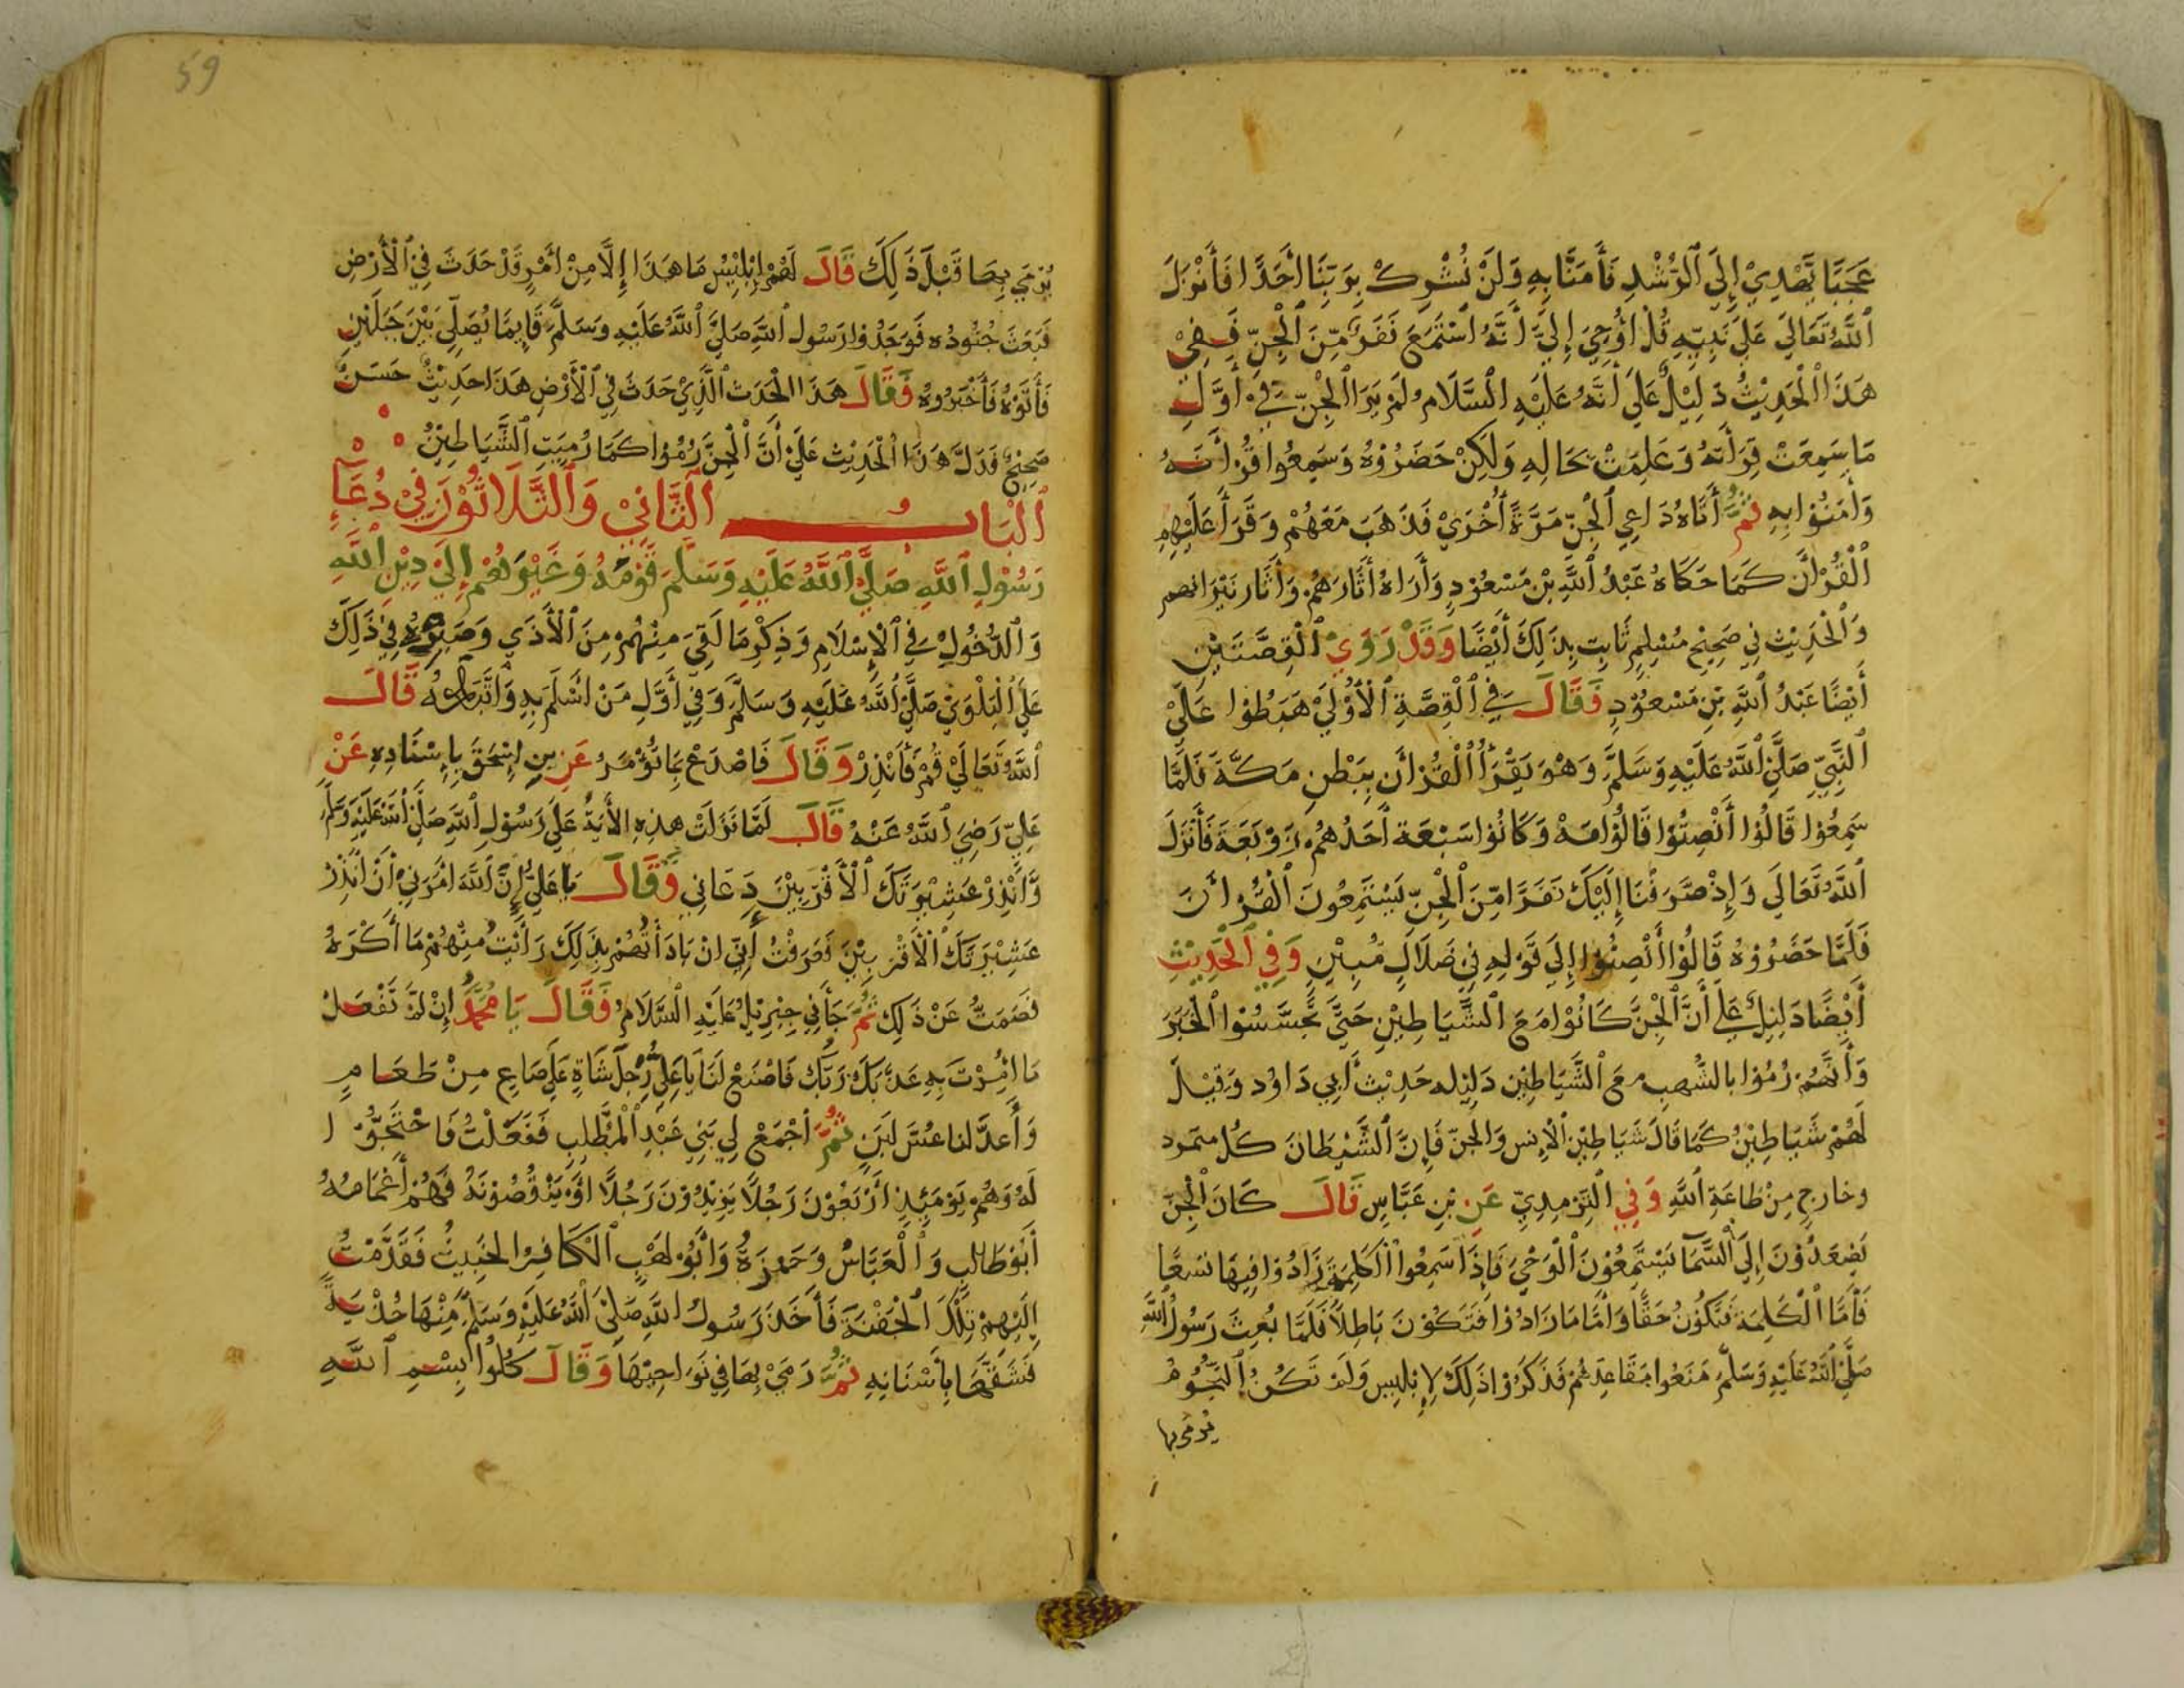 عَجَبًا يَهْدِيْ إِلَى ٱلرُّشْدِ فَأٰمَنَّا بِهِ وَلَنْ نُشْرِكْ بِرَبِّنَا أَحَدًا فَأَنْزَلَ
ٱللَّهُ تَعَالَى عَلَى نَبِيِّهِ قُلْ أُوْحِيَ إِلَيَّ أَنَّهُ ٱسْتَمَعَ نَفَرٌ مِّنَ ٱلْجِنِّ فَفِيْ
هَذَا ٱلْحَدِيْثُ دَلِيْلٌ عَلَى أَنَّهُ عَلَيْهِ السَّلَامُ لَمْ يَرَا ٱلْجِنّ فِيْ أَوَّلِ
مَا سَمِعَتْ قِرَأَتَهُ وَعَلِمَتْ بِحَالِهِ وَلَكِنْ حَضَرُوْهُ وَسَمِعُوا قُرْأٰنَهُ
وَأٰمَنُوْا بِهِ ثُمَّ أَتَاهُ دَاعِي ٱلْجِنِّ مَرَّةً أُخْرَيْ فَذَهَبَ مَعَهُمْ وَقَرَأَ عَلَيْهِمِ
ٱلْقُرْأَنَ كَمَا حَكَاهُ عَبْدُ ٱللَّهِ بْنِ مَسْعُوْدٍ وَأَرَاهُ أَثَارَهُمْ وَأَثَارَ نَيْرَانهم
وَٱلْحَدِيْث فِي صَحِيْحِ مُسْلِمِ ثَابِت بِذَلِكَ أَيْضًا وَقَدْ رَوَيْ ٱلْقِصَّتَيْنِ
أَيْضًا عَبْدُ ٱللَّهِ بْنِ مَسْعُوْدٍ فَقَالَ فِي ٱلْقِصَّةِ ٱلْأُوْلَيْ هَبَطُوْا عَلَيْ
ٱلنَّبِيِّ صَلَّيْ ٱللَّهُ عَلَيْهِ وَسَلَّمَ وَهْوَ يَقْرَأُ ٱلْقُرْأَن بِبَطْنِ مَكَّةَ فَلَمَّا
سَمِعُوْا قَالُوْا أَنْصِتُوْا قَالُوْا مَهْ وَكَانُوْا سَبْعَة أَحَدُهُمُ زَوْبَعَةَ فَأَنْزَلَ
ٱللَّهُ تَعَالَي وَإِذْ صَرَفْنَا إِلَيْكَ نَفَرًا مِّنَ ٱلْجِنِّ يَسْتَمِعُونَ ٱلْقُرْأٰنَ
فَلَمَّا حَضَرُوْهُ قَالُوْا أَنْصِتُوْا إِلَي قَوْلِهِ فِي ضَلَالٍ مُبِيْنٍ وَفِي ٱلْحَدِيْثِ
أَيْضًا دَلِيْلٌ عَلَى أَنَّ ٱلْجِنَّ كَانُوْا مَعَ ٱلشَّيَاطِيْنِ حَتَّي تَحَسَّسُوْا ٱلْخَبَرَ
وَأَنَّهُمْ رُمُوْا بالشُّهبِ مَعَ ٱلشَّيَاطِيْنِ دَلِيْله حَدِيْث أَبِي دَاوُد وَقِيْلَ
لَهُمْ شَيَاطِيْنُ كَمَا قَالَ شَيَاطِيْنَ ٱلْإِنس وَالجِنّ فَإِنَّ ٱلشَّيْطَانَ كُل متمرد
وخارجٍ مِنْ طَاعَةِ ٱللَّهِ وَفِي ٱلتِّرْمِذِيّ عَنِ بْنِ عَبَّاسٍ قَالَ كَانَ ٱلْجِنّ
يَصْعَدُوْنَ إِلَى ٱلسَّمَآ يَسْتَمِعُوْنَ ٱلْوَحْيَ فَإِذَا سَمِعُوا ٱلْكَلِمَةَ زَادُوْا فِيْهَا تسْعًا
فَأَمَّا ٱلْكَلِمَة فَتَكُوْنُ حَقًّا وَأَمَّا مَا زَادُوْا فَتَكُوْنَ بَاطِلًا فَلَمَّا بُعِثَ رَسُوْلُ ٱللَّهِ
صَلَّيْ ٱللَّهُ عَلَيْهِ وَسَلَّمَ مَنَعُوا مَقَاعِدَهُمْ فَذَكَرُوْا ذَلِكَ لِإِبْلِيس وَلَمْ تَكُنِ ٱلنُّجُوْمُ
يُرْمَى بِهَا
يُرْمَى بِهَا قَبْلَ ذَلِكَ قَالَ لَهُمْ إِبْلِيْس مَا هَذَا إِلَّا مِنْ أَمْرٍ قَدْ حَدَثَ فِي ٱلْأَرْضِ
فَبَعَثَ جُنُوْدُه فَوَجَدُوْا رَسُوْل ٱللَّهِ صَلَّيْ ٱللَّهُ عَلَيْهِ وَسَلَّمَ قَايِمًا يُصَلِّي بَيْنَ جَبَلَيْنِ
فَأَتَوْهُ فَأَخْبَرُوهُ فَقَالَ هَذَا ٱلْحَدَث ٱلَّذِيْ حَدَثَ فِي ٱلْأَرْضِ هَذَا حَدِيْثٌ حَسَنٌ
صَحِيْحٌ فَدَلَّ هَذَا ٱلْحَدِيْث عَلَيْ أَنَّ ٱلْجِنَّ رُمُوْا كَمَا رُمِيَتِ ٱلشَّيَاطِيْنُ
ٱلْبَابُ ٱلثَّانِيْ وَٱلثَّلَاثُوْنَ فِيْ دُعَآءِ
رَسُوْلِ ٱللَّهِ صَلَّيْ ٱللَّهُ عَلَيْهِ وَسَلَّمَ قَوْمَهُ وَغَيْرَهُمْ إِلَيْ دِيْنِ ٱللَّهِ
وَٱلدُّخُوْلِ فِي ٱلْإِسْلَامِ وَذِكْرِ مَا لَقِيَ مِنْهُمْ مِنَ ٱلْأَذَي وَصَبْرِهِ فِيْ ذَلِكَ
عَلَى ٱلْبَلْوَيْ صَلَّيْ ٱللَّهُ عَلَيْهِ وَسَلَّمَ وَفِي أَوَّلِ مَنْ أَسْلَمَ بِهِ قَالَ
ٱللَّهُ تَعَالَيْ قُمْ فَأَنْذِرْ وَقَالَ فَاصْدَعْ بِمَا تُؤْمَرُ عَنِ بنِ إِسْحَقَ بِإِسْنَادِهِ عَنْ
عَلِيّ رَضِيَ ٱللَّهُ عَنْهُ قَالَ لَمَّا نَزَلَتْ هذِهِ الأٰيَةُ عَلَى رَسُوْلِ ٱللَّهِ صَلَّيْ ٱللَّهُ عَلَيْهِ وَسَلَّمَ
وَأَنْذِرْ عَشِيْرَتَكَ ٱلْأَقْرَبِيْنَ دَعَانِي فَقَالَ يَا عَلِيُّ إِنَّ ٱللَّهَ أَمَرَنِيْ أَنْ أُنْذِرْ
عَشِيْرَتَكَ ٱلْأَقْرَبِيْنَ فَعَرَفْتُ أَنِّي انْ بَادَأْتُهُمْ بِذَلِكَ رَأَيْتُ مِنْهُمْ مَا أَكْرَهُ
فَصَمَتُّ عَنْ ذَلِكَ ثُمَّ جَأَنِي جِبْرِيْلُ عَلَيْهِ السَّلَامُ فَقَالَ يَا مُحَمَّدُ إِنْ لَمْ تَفْعَلْ
مَا أُمِرْتَ بِهِ عَذَّبَكَ رَبُّكَ فَاصْنَعْ لَنَا يَا عَلِيُّ رِجْلَ شَاةٍ عَلَى صَاعٍ مِنْ طَعَامٍ
وَأَعدَّ لنا عسَّ لَبَنٍ ثُمَّ أجْمَعْ لِي بَنِي عَبْدِ ٱلْمُطَّلِبِ فَفَعَلْتُ فَاحْتَجُّوْا
لَهُ وَهُمْ يَوْمَئِذٍ أَرْبَعُوْنَ رَجُلًا يَزِيْدُوْنَ رَجُلًا أَوْ يَنْقُصُوْنَهُ فَهُمْ أَعْمَامُهُ
أَبُوْ طَالِبٍ وَٱلْعَبَّاسُ وَحَمْزَةُ وَأَبُوْ لهَبٍ ٱلْكَافِرُ الخَبِيثُ فَقَدَّمْتُ
إِلَيْهِمْ تِلْكَ ٱلْجَفْنَةَ فَأَخَذَ رَسُوْلُ اللَّهِ صَلَّىْ ٱللَّهُ عَلَيْهِ وَسَلَّمَ مِنْهَا حُذْيَةً
فَشَقَّهَا بِأَسْنَانِهِ ثُمَّ رَمَيْ بِهَا فِي نَوَاحِيْهَا وَقَالَ كُلُوْا بِسْمِ ٱللَّهِ
59